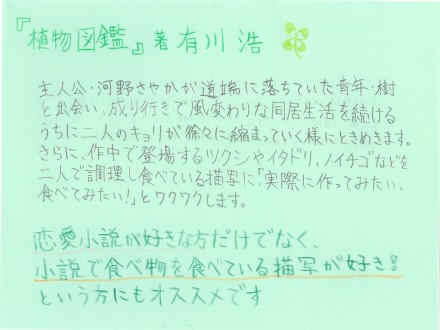 『植物図鑑』著 有川 浩
主人公・河野さやかが道端に落ちていた青年・樹
と出会い、成り行きで風変わりな同居生活を続ける
うちに二人のキョリが徐々に縮まっていく様にときめきます。
さらに、作中で登場するツクシやイタドリ、ノイチゴなどを
二人で調理し食べている描写に「実際に作ってみたい、
食べてみたい!」とワクワクします。
恋愛小説が好きな方だけでなく、
小説で食べ物を食べている描写が好き!
という方にもオススメです